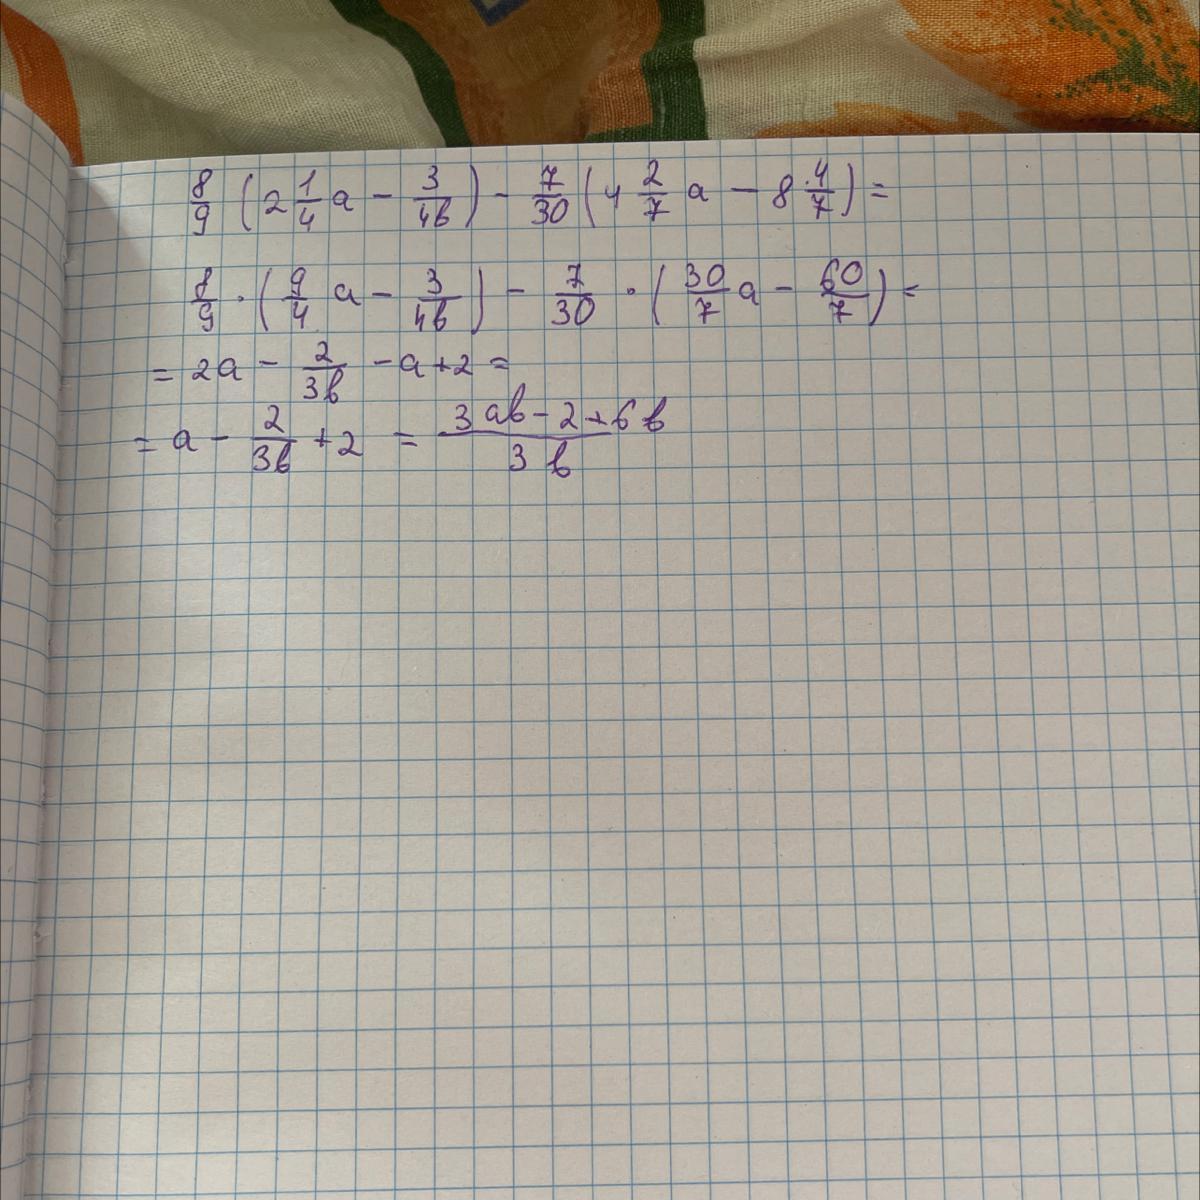 8/9 (2 1/4 a − 3/4b) − 7/30 (4 2/7 a − 8 4/7) =
8/9 · (9/4 a − 3/4b) − 7/30 · (30/7 a − 60/7) =
= 2a − 2/3b − a + 2 =
= a − 2/3b + 2 = 3ab − 2 + 6b / 3b